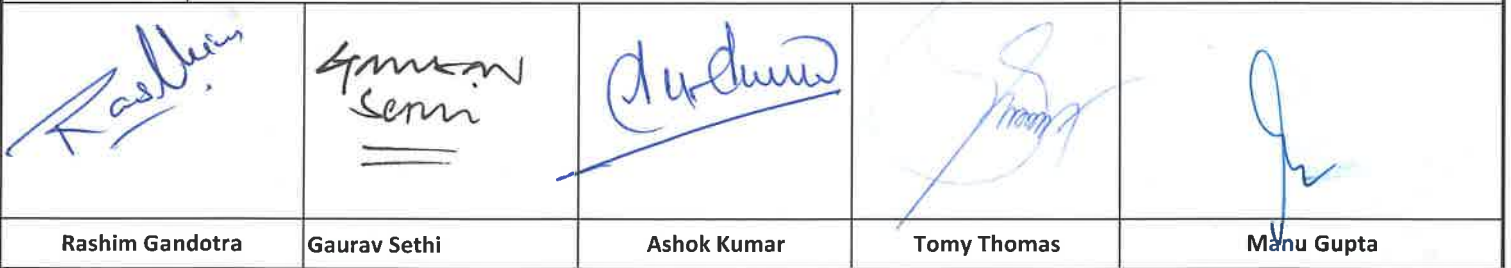 Rashim
Gaurav
Sethi
Rashim Gandotra
Gaurav Sethi
Ashok Kumar
Tomy Thomas
Manu Gupta